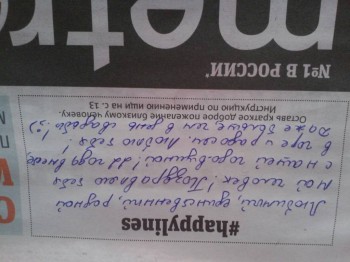 #happylines
Любимый, единственный, родной
мой человек! Поздравляю тебя
с нашей годовщиной! года вместе
в горе и радости. Люблю тебя
даже больше чем в день свадьбы! :)
Оставь краткое доброе пожелание близкому человеку.
Инструкцию по применению ищи на с. 13
№1 В РОССИИ*
metro